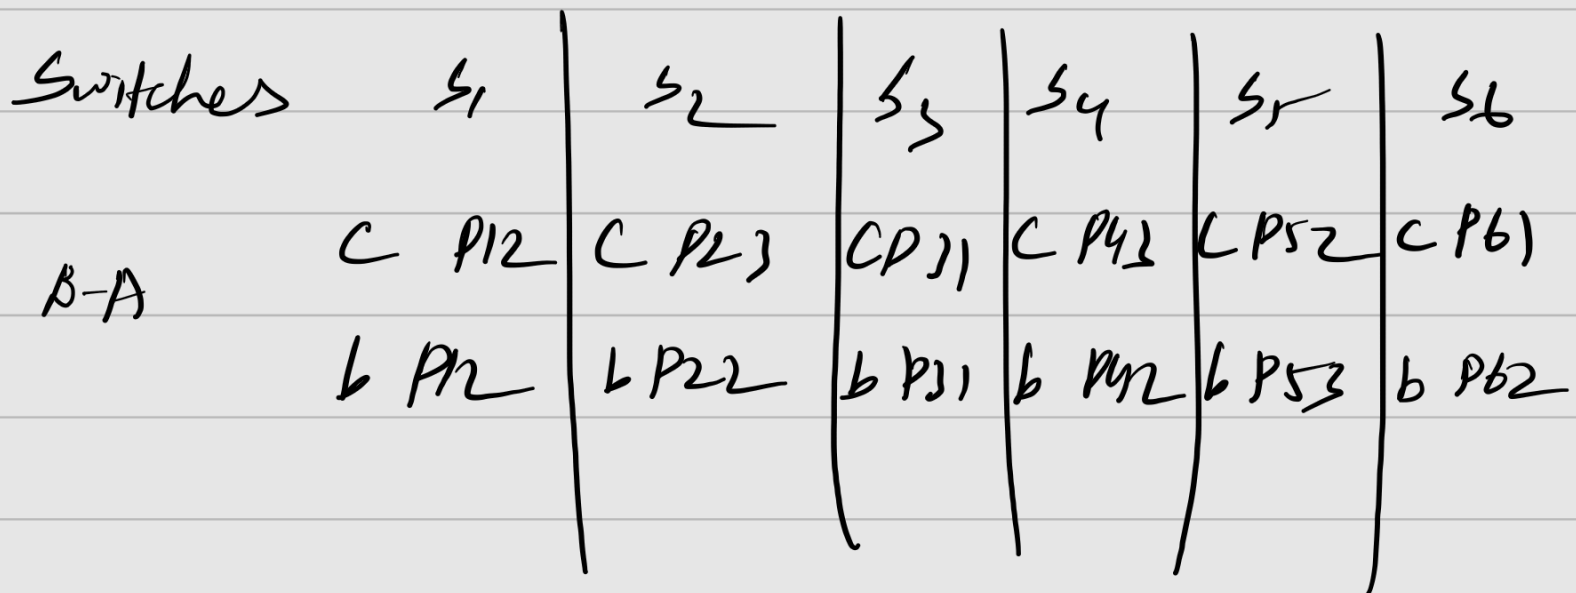 Switches S1 S2 S3 S4 S5 S6
C P12 C P23 C P31 C P43 C P52 C P61
B-A
b P12 b P22 b P31 b P42 b P53 b P62